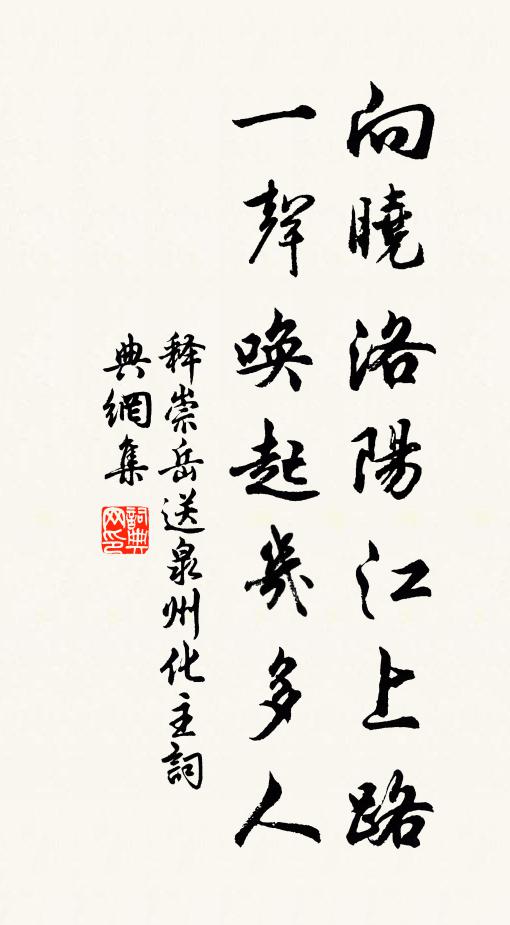 向曉洛陽江上路
一聲喚起幾多人
释崇岳送泉州化主詞
典網集
詞典網印